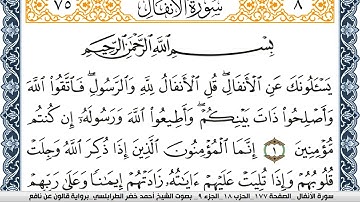 ٧٥ سُورَةُ الأَنفَالِ ٨
بِسْمِ اللَّهِ الرَّحْمَٰنِ الرَّحِيمِ
يَسْـَٔلُونَكَ عَنِ الْأَنفَالِ قُلِ الْأَنفَالُ لِلَّهِ وَالرَّسُولِ فَاتَّقُوا اللَّهَ
وَأَصْلِحُوا ذَاتَ بَيْنِكُمْ وَأَطِيعُوا اللَّهَ وَرَسُولَهُ إِن كُنتُم
مُّؤْمِنِينَ ١ إِنَّمَا الْمُؤْمِنُونَ الَّذِينَ إِذَا ذُكِرَ اللَّهُ وَجِلَتْ
قُلُوبُهُمْ وَإِذَا تُلِيَتْ عَلَيْهِمْ ءَايَٰتُهُ زَادَتْهُمْ إِيمَٰنًا وَعَلَىٰ رَبِّهِمْ
سورة الأنفال الصفحة ١٧٧ الحزب ١٨ الجزء ٩ بصوت الشيخ أحمد خضر الطرابلسي برواية قالون عن نافع